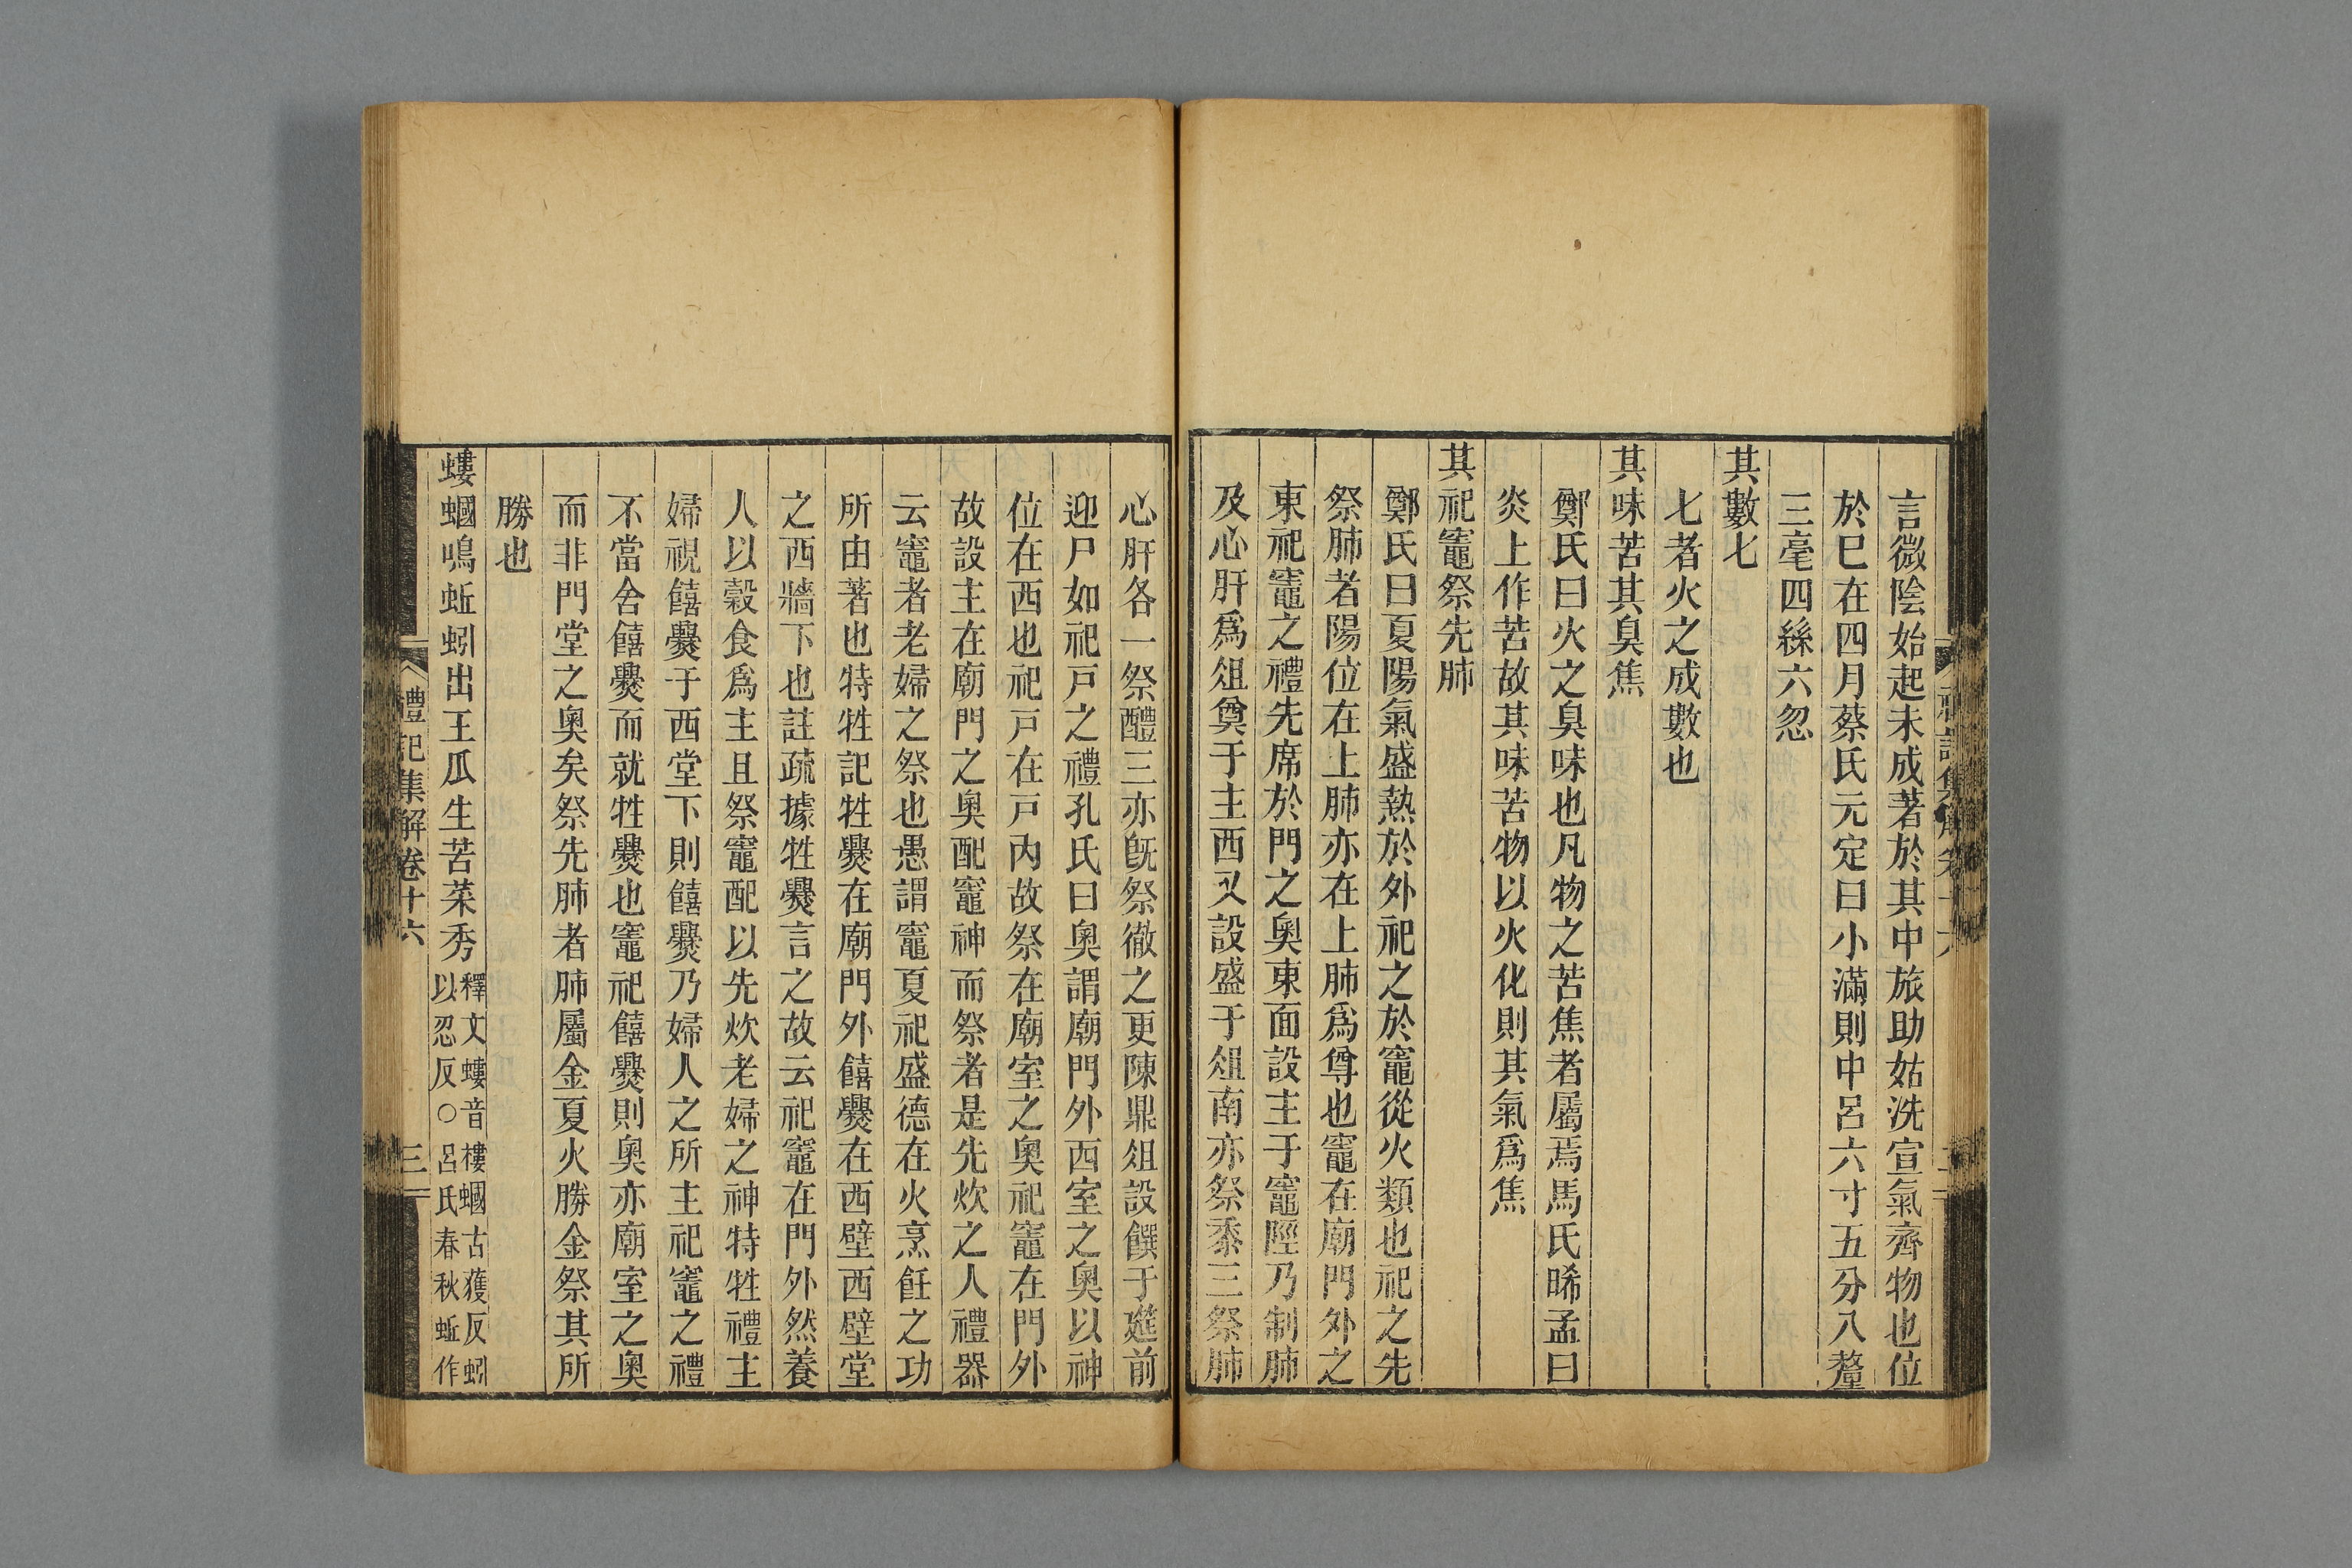 言微陰始起未成著於其中旅助姑洗宣氣齊物也位
於巳在四月蔡氏元定曰小滿則中呂六寸五分八釐
三毫四絲六忽
其數七
七者火之成數也
其味苦其臭焦
鄭氏曰火之臭味也凡物之苦焦者屬焉馬氏晞孟曰
炎上作苦故其味苦物以火化則其氣爲焦
其祀竈祭先肺
鄭氏曰夏陽氣盛熱於外祀之於竈從火類也祀之先
祭肺者陽位在上肺亦在上肺爲尊也竈在廟門外之
東祀竈之禮先席於門之奧東面設主于竈陘乃制肺
及心肝爲俎奠于主西又設盛于俎南亦祭黍三祭肺
心肝各一祭醴三亦旣祭徹之更陳鼎俎設饌于筵前
迎尸如祀戸之禮孔氏曰奧謂廟門外西室之奧以神
位在西也祀戸在戸內故祭在廟室之奧祀竈在門外
故設主在廟門之奧配竈神而祭者是先炊之人禮器
云竈者老婦之祭也愚謂竈夏祀盛德在火烹飪之功
所由著也特牲記牲爨在廟門外饎爨在西壁西壁堂
之西牆下也註疏據牲爨言之故云祀竈在門外然養
人以穀食爲主且祭竈配以先炊老婦之神特牲禮主
婦視饎爨于西堂下則饎爨乃婦人之所主祀竈之禮
不當舍饎爨而就牲爨也竈祀饎爨則奧亦廟室之奧
而非門堂之奧矣祭先肺者肺屬金夏火勝金祭其所
勝也
螻蟈鳴蚯蚓出王瓜生苦菜秀釋文螻音樓蟈古獲反蚓
以忍反○呂氏春秋蚯作
禮記集解卷十六 三